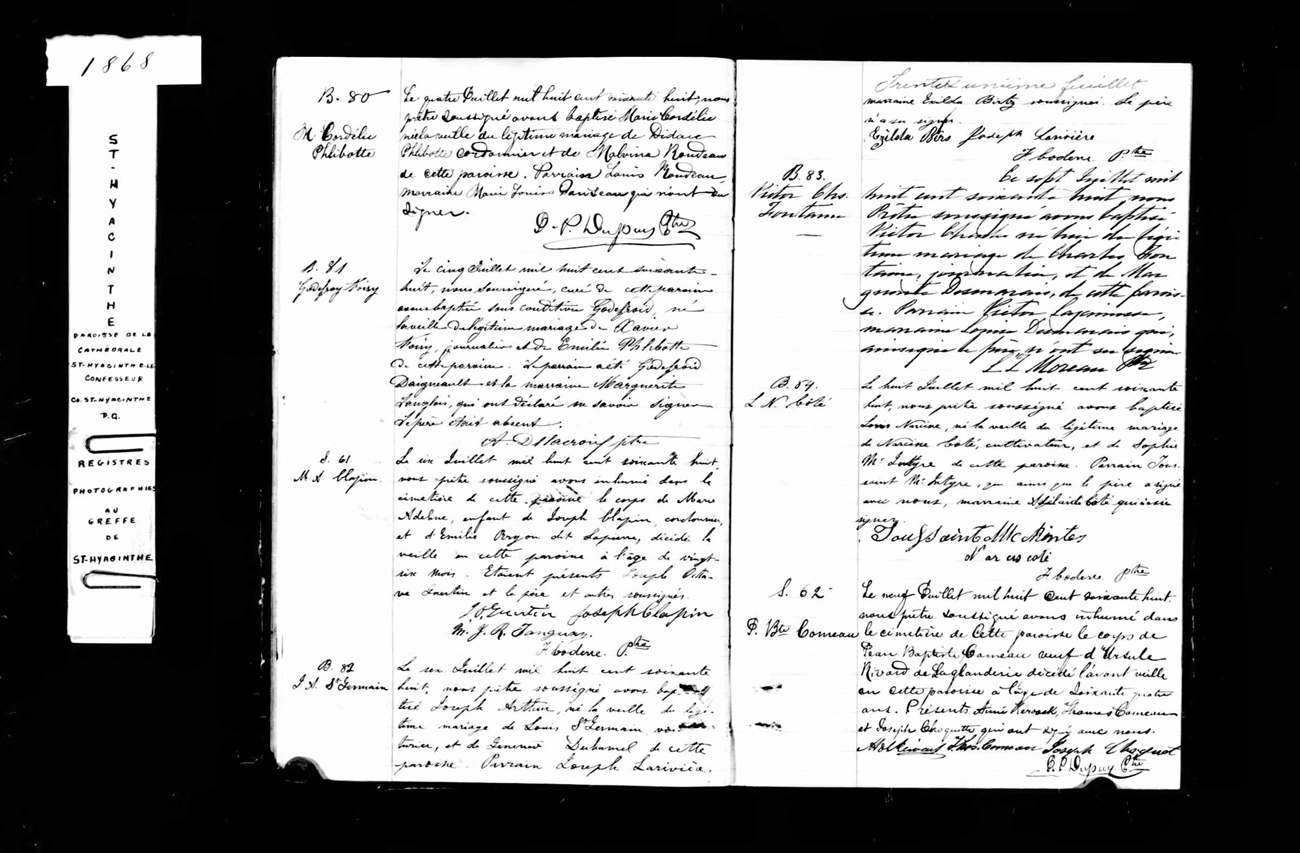 1868
ST-HYACINTHE
PAROISSE DE LA
CATHÉDRALE
ST-HYACINTHE-LE
CONFESSEUR
CO. ST-HYACINTHE
P.Q.
REGISTRES
PHOTOGRAPHIES
AU
GREFFE
DE
ST-HYACINTHE
B. 80
M. Cordélie
Phlibotte
Le quatre Juillet mil huit cent soixante huit, nous
prêtre soussigné avons baptisé Marie Cordélie
née la veille du légitime mariage de
Phlibotte cordonnier et de Malvina Rondeau
de cette paroisse. Parrain Louis Rondeau,
marraine Marie Louise qui n'ont su
signer.
O. P. Dupuy Ptre
B. 81
Godefroy Noiry
Le cinq Juillet mil huit cent soixante-
huit, nous, soussigné, curé de cette paroisse
avons baptisé sous condition Godefroid, né
la veille du légitime mariage de Xavier
Noiry, journalier et de Emilie Phlibotte
de cette paroisse. Le parrain a été Godefroid
Daigneault et la marraine Marguerite
Langlois, qui ont déclaré ne savoir signer
Le père était absent.
A. Delacroix ptre
S. 61
M A Clapin
Le six Juillet mil huit cent soixante huit,
nous prêtre soussigné avons inhumé dans le
cimetière de cette paroisse le corps de Marie
Adeline, enfant de Joseph Clapin, cordonnier,
et d'Emilie Bryon dit Lapierre, décédée la
veille en cette paroisse à l'âge de vingt-
six mois. Etaient présents Joseph Octa-
ve Guertin et le père et autres soussignés.
J. O. Guertin Joseph Clapin
M. J. R. Tanguay.
Ptre
B. 82
J. A. St Germain
Le six Juillet mil huit cent soixante
huit, nous prêtre soussigné avons bap
tisé Joseph Arthur, né la veille du légi-
time mariage de Louis St Germain voi
turier, et de Geneviève Duhamel de cette
paroisse. Parrain Joseph Larivière,
Trente unième feuillet
marraine Exilda soussignés. Le père
n'a su signer
Joseph Larivière
Ptre
B. 83.
Victor Chs.
Fontaine
Le sept Juillet mil
huit cent soixante huit, nous
Prêtre soussigné avons baptisé
Victor Charles né hier du légi-
time mariage de Charles Fon-
taine, journalier, et de Mar
guerite Desmarais, de cette parois-
se. Parrain Victor Lajeunesse,
marraine Louise Desmarais qui,
ainsi que le père, n'ont su signer
L Z Moreau Ptre
B. 84.
L N Côté
Le huit Juillet mil huit cent soixante
huit, nous prêtre soussigné avons baptisé
Louis Narcisse, né la veille du légitime mariage
de Narcisse Coté, cultivateur, et de Sophie
Mc Intyre de cette paroisse. Parrain Tous-
saint Mc Intyre, qui ainsi que le père a signé
avec nous, marraine Adélaide Coté qui n'a su
signer.
Toussaint Mc Kintes
Narcis coté
ptre
S. 62
J. Bte Comeau
Le neuf Juillet mil huit cent soixante huit
nous prêtre soussigné avons inhumé dans
le cimetière de Cette paroisse le corps de
Jean Baptiste Comeau veuf d'Ursule
Rivard de Laglanderie décédé l'avant veille
en cette paroisse à l'âge de soixante quatre
ans. Présents Aimé Kerouack, Thomas Comeau
et Joseph Choquette qui ont signé avec nous.
Thos. Comeau Joseph Choquet
O. P. Dupuy Ptre